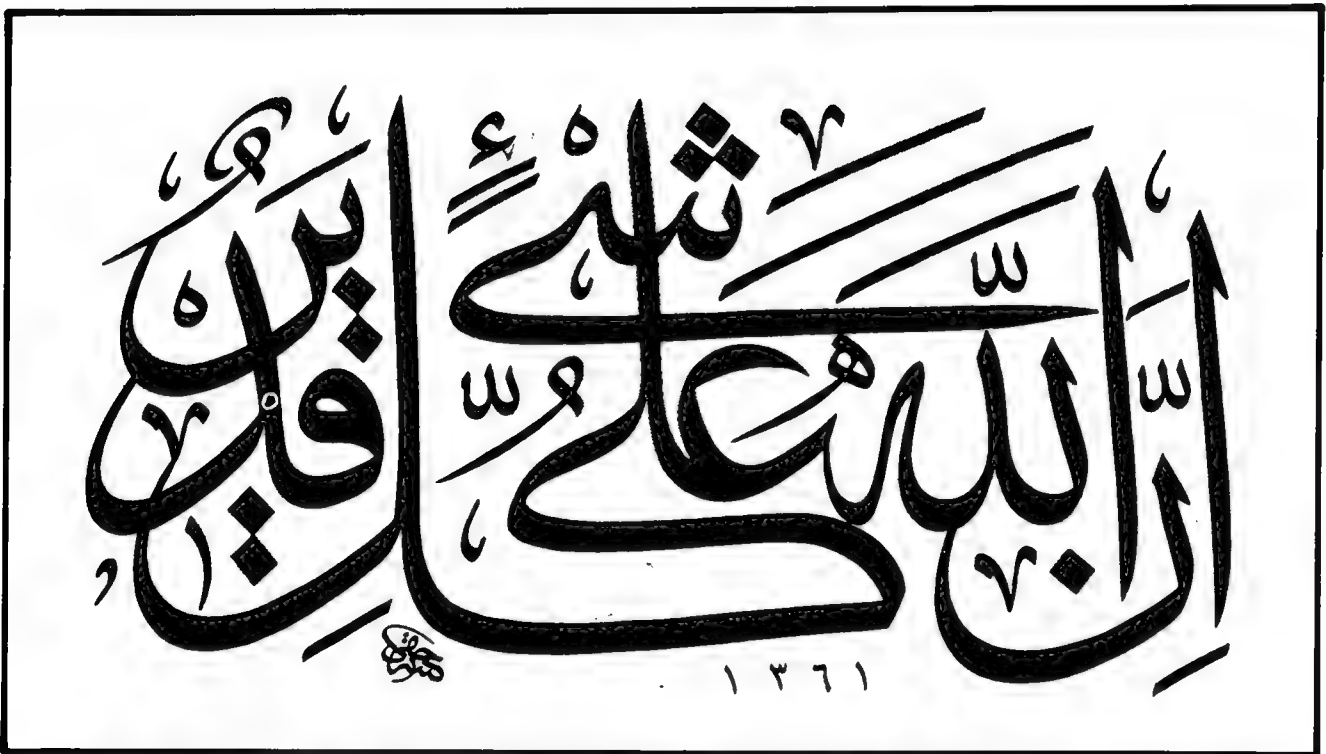 اِنَّ اللّٰهَ عَلٰى كُلِّ شَىْءٍ قَدِيرٌ
١٣٦١